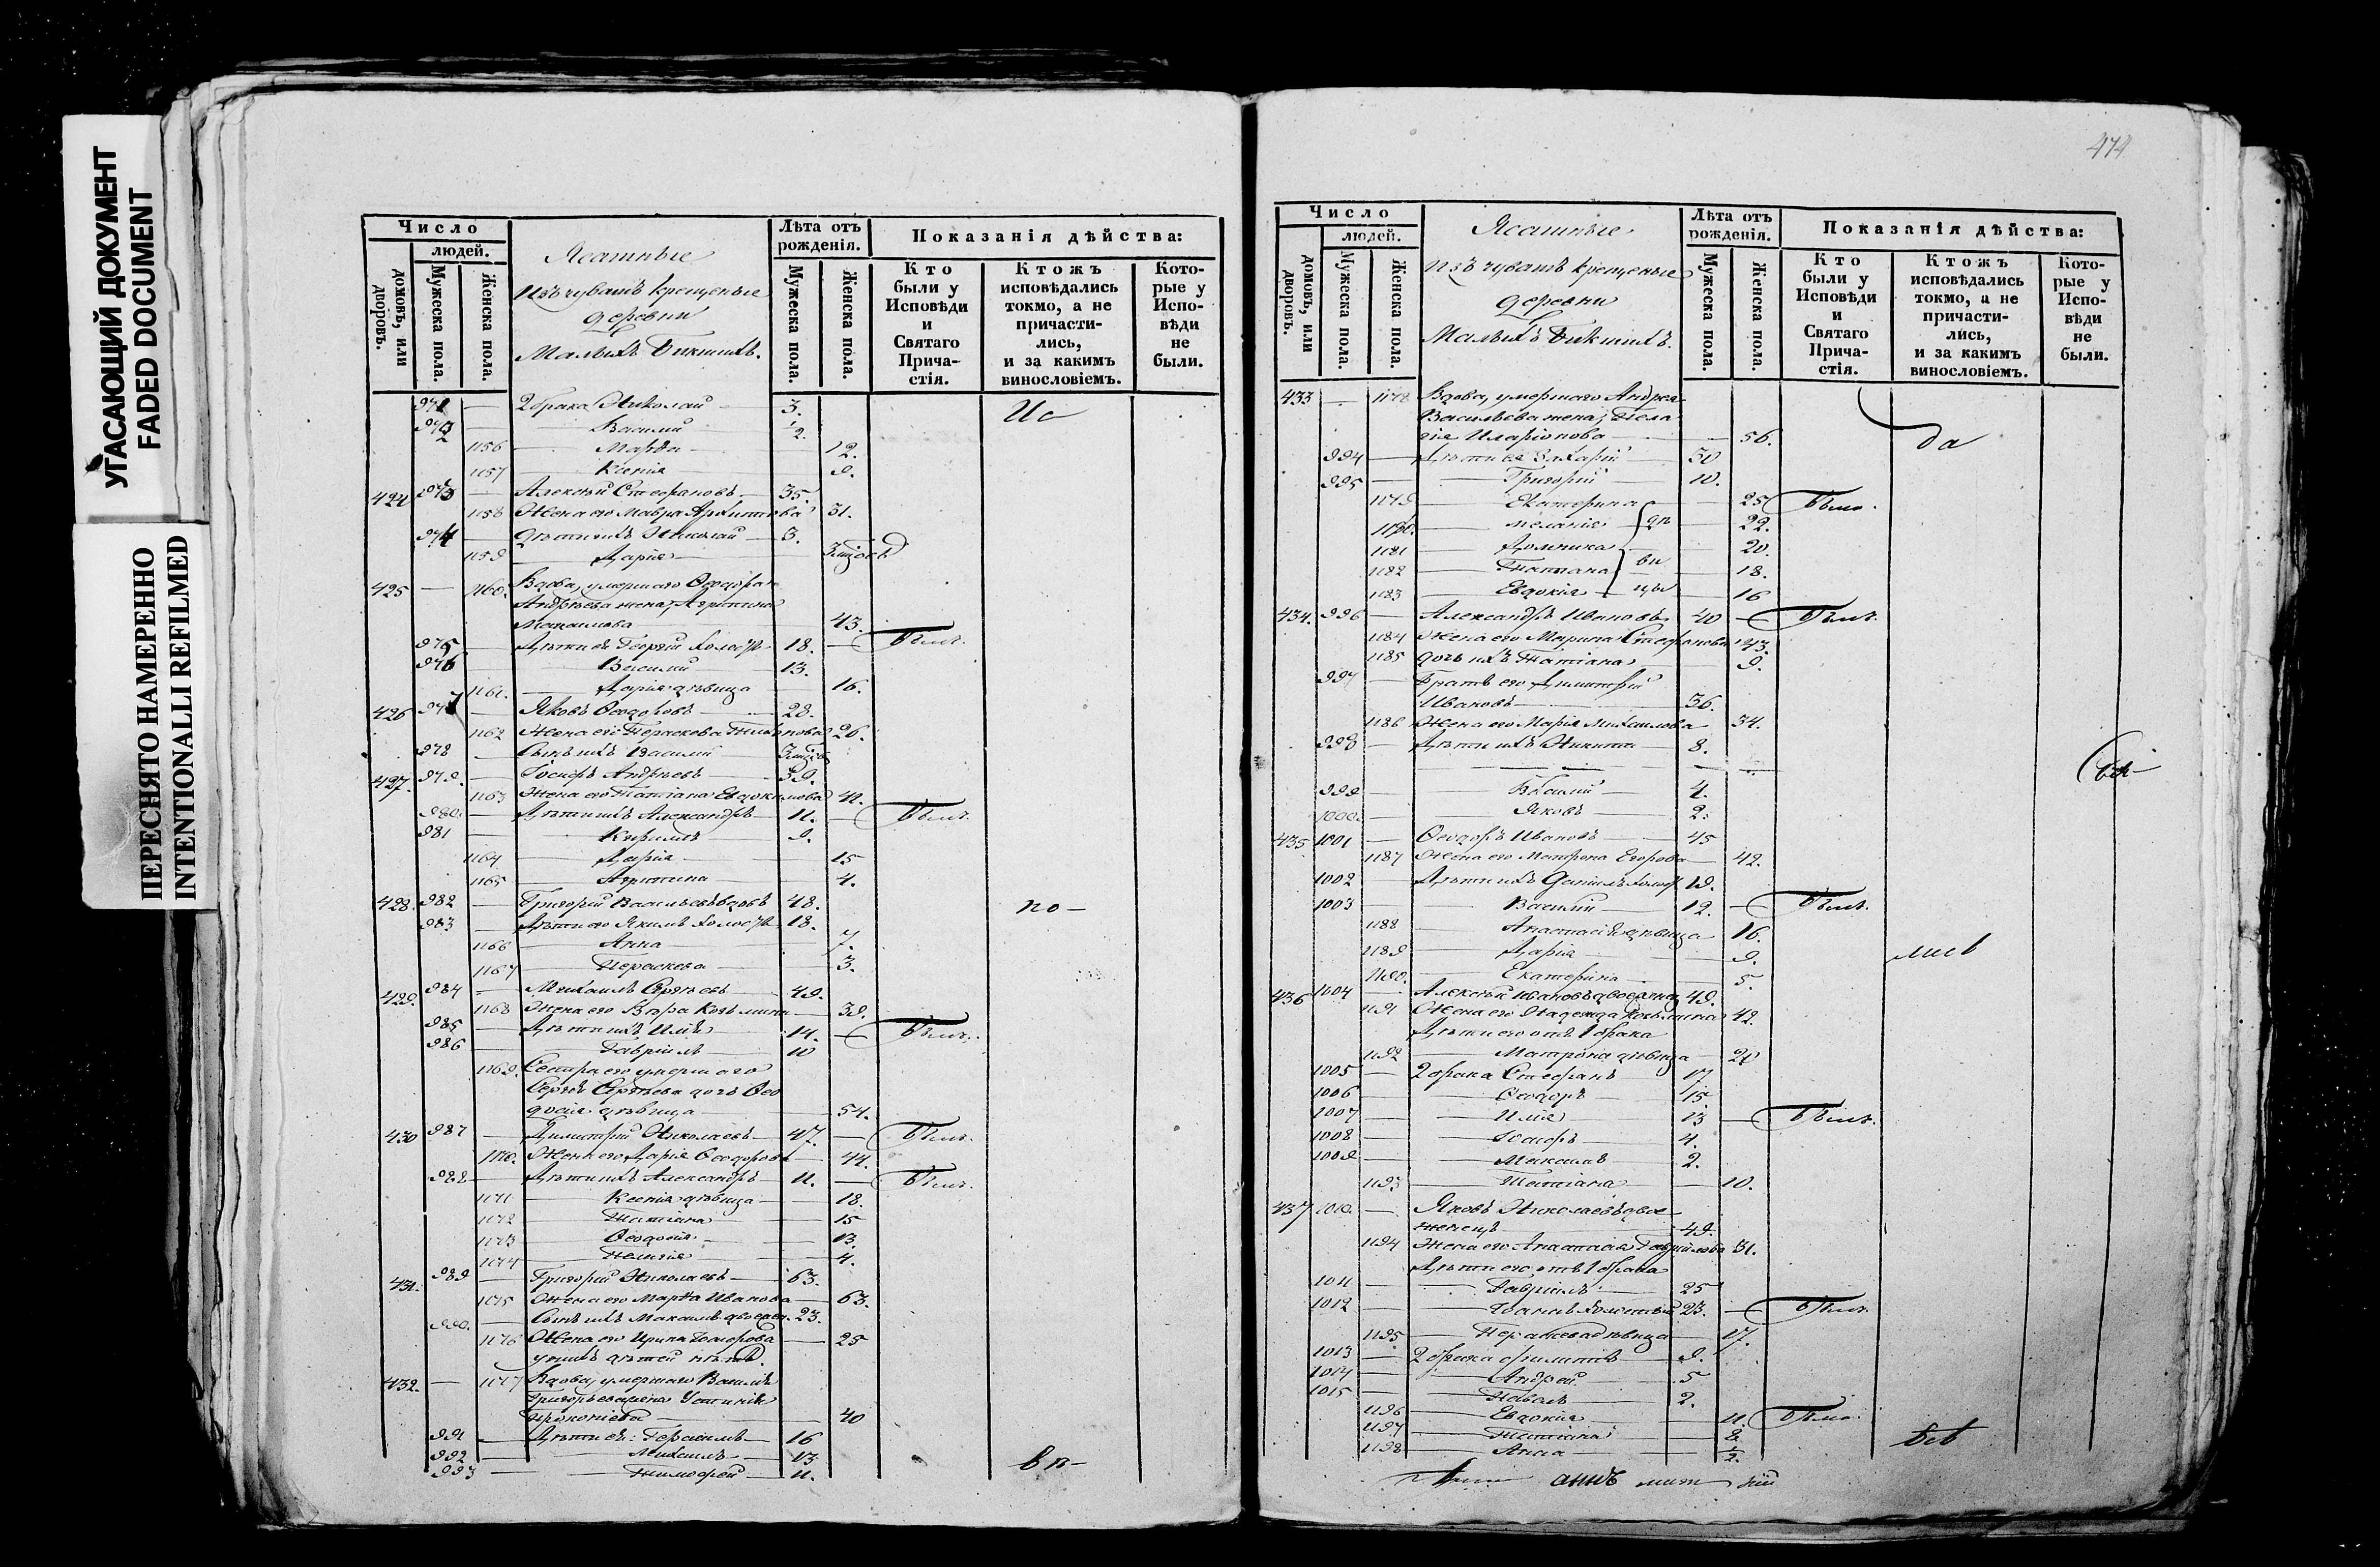 УГАСАЮЩИЙ ДОКУМЕНТ
FADED DOCUMENT
ПЕРЕСНЯТО НАМЕРЕННО
INTENTIONALLI REFILMED
Число
людей.
домовъ, или дворовъ.
Мужеска пола.
Женска пола.
Ясашные
изъ чувашъ крещеные
деревни
Малыхъ Бикшихъ.
Лѣта отъ рожденія.
Мужеска пола.
Женска пола.
Показанія дѣйства:
Кто были у Исповѣди и Святаго Причастія.
Ктожъ исповѣдались токмо, а не причастились, и за какимъ винословіемъ.
Которые у Исповѣди не были.
971 — 2 брака Николай 3.
972 Василий 2.
1156 Марѳа 12.
1157 Ксенія 9.
424 973 — Алексѣй Стефановъ 35.
1158 Жена его Мавра Архипова 31.
974 — Дѣти ихъ Николай 3.
1159 Дарія
425 — 1160. Вдова, умершаго Ѳеодора
Андреева жена, Агрипина
43.
975 — Дѣти ея Георгій холостъ 18. — Былъ.
976 Василий 13.
1161. Дарія дѣвица 16.
426 977 — Яковъ Ѳеодоровъ 28.
1162 Жена его Параскева 26.
978 — Сынъ ихъ Василий
427. 979. — Іосифъ Андреевъ 39.
1163 Жена его Татіана Евдокимова 41.
980. — Дѣти ихъ Александръ 11. — Былъ.
981 — Кирилъ 9.
1164 Дарія 15
1165 Агрипина 4.
428. 982 — Григорій Васильевъ вдовъ 48. по-
983 — Дѣти его Якимъ холостъ 18.
1166 Анна 7.
1167 Параскева 3.
429. 984 — Михаилъ Сергѣевъ 49.
1168 Жена его Вѣра Козьмина 39.
985 — Дѣти ихъ Илія 14. — Былъ.
986 Гавріилъ 10
1169. Сестра его умершаго
Сергѣя Сергѣева дочь Ѳео
досія дѣвица 54.
430 987 — Димитрій Николаевъ 47. — Былъ.
1170. Жена его Дарія Ѳеодорова 44.
988 — Дѣти ихъ Александръ 11. — Былъ.
1171 Ксенія дѣвица 18.
1172 Татіана 15
1173 Ѳеодосія 13.
1174 Пелагія 4.
431. 989 — Григорій Николаевъ 63.
1175 Жена его Марѳа Иванова 63.
990. — Сынъ ихъ Максимъ 23.
1176 Жена его Ирина 25
у нихъ дѣтей нѣтъ.
432. — 1177 Вдова, умершаго Василія
Григорьева жена Устинія
Прокопіева 40
991 — Дѣти ея: Герасимъ 16
992 — Михаилъ 13
993 — Тимофей 11.
474
Число
людей.
домовъ, или дворовъ.
Мужеска пола.
Женска пола.
Ясашные
изъ чувашъ крещеные
деревни
Малыхъ Бикшихъ.
Лѣта отъ рожденія.
Мужеска пола.
Женска пола.
Показанія дѣйства:
Кто были у Исповѣди и Святаго Причастія.
Ктожъ исповѣдались токмо, а не причастились, и за какимъ винословіемъ.
Которые у Исповѣди не были.
433 — 1178 Вдова, умершаго Андрея
Васильева жена, Пела
гія Иларіонова 56. да
994 — Дѣти ея Захарій 30
995 — Григорій 10.
1179 Екатерина 25 Была.
1180. Меланія 22.
1181 Домника 20.
1182 Татіана 18.
1183 Евдокія 16
434. 996 — Александръ Ивановъ 40 — Былъ.
1184 Жена его Марина Стефанова 43.
1185 дочь ихъ Татіана 9.
997 — Братъ его Димитрій
Ивановъ 36.
1186 Жена его Марія Михаилова 34.
998 — Дѣти ихъ Никита 8.
999 — Василій 4.
1000. — Яковъ 2.
435 1001 — Ѳеодоръ Ивановъ 45
1187 Жена его Матрона Егорова 42.
1002 — Дѣти ихъ Данилъ холостъ 19.
1003 — Василій 12. — Былъ.
1188 Анастасія дѣвица 16.
1189 Дарія 9. лись
1190. Екатерина 5.
436 1004 — Алексѣй Ивановъ 49.
1191 Жена его Надежда Козьмина 42.
Дѣти его отъ 1 брака
1192 Матрона дѣвица 20
1005 — 2 брака Стефанъ 17
1006 — Ѳеодоръ 15
1007 — Илія 13 — Былъ.
1008 — Іосифъ 4.
1009 — Максимъ 2.
1193 Татіана 10.
437 1010. — Яковъ Николаевъ двое
женецъ 49.
1194 Жена его Анастасія Гавріилова 31.
Дѣти его отъ 1 брака
1011 — Гавріилъ 25
1012 — Іоаннъ холостый 23. — Былъ.
1195 Параскева дѣвица 17.
1013 — 2 брака Филиппъ 9.
1014 — Андрей 5
1015 — Павелъ 2.
1196 Евдокія 11. Была.
1197 Татіана 8.
1198 Анна